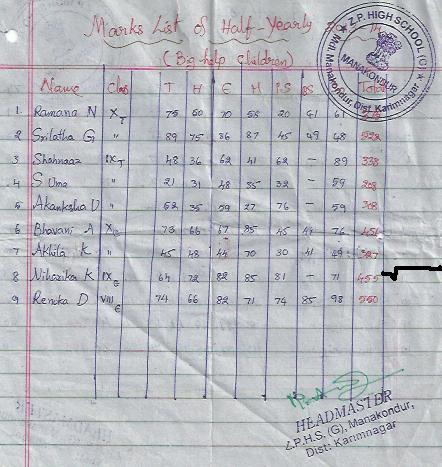 Marks List of Half-Yearly
(Big-help Children)
Z.P. HIGH SCHOOL (G)
MANAKONDUR
Mdl. Manakondur, Dist. Karimnagar
Name Class T H E M P.S BS Total
1. Ramana N X T 75 50 70 55 20 41 61
2 Srilatha G " 89 75 86 87 45 49 68 522
3 Shahnaaz IX T 48 36 62 41 62 – 89 338
4 S Uma " 21 31 48 35 32 – 59
5 Akanksha U " 52 35 59 27 76 – 59 308
6 Bhavani A X E 73 66 67 85 45 44 76 456
7 Akhila K " 45 48 44 70 30 41 49 327
8 Niharika K IX E 64 72 82 85 81 – 71 455
9 Renuka D VIII E 74 66 82 71 74 85 98 550
HEADMASTER
Z.P.H.S. (G), Manakondur,
Dist: Karimnagar